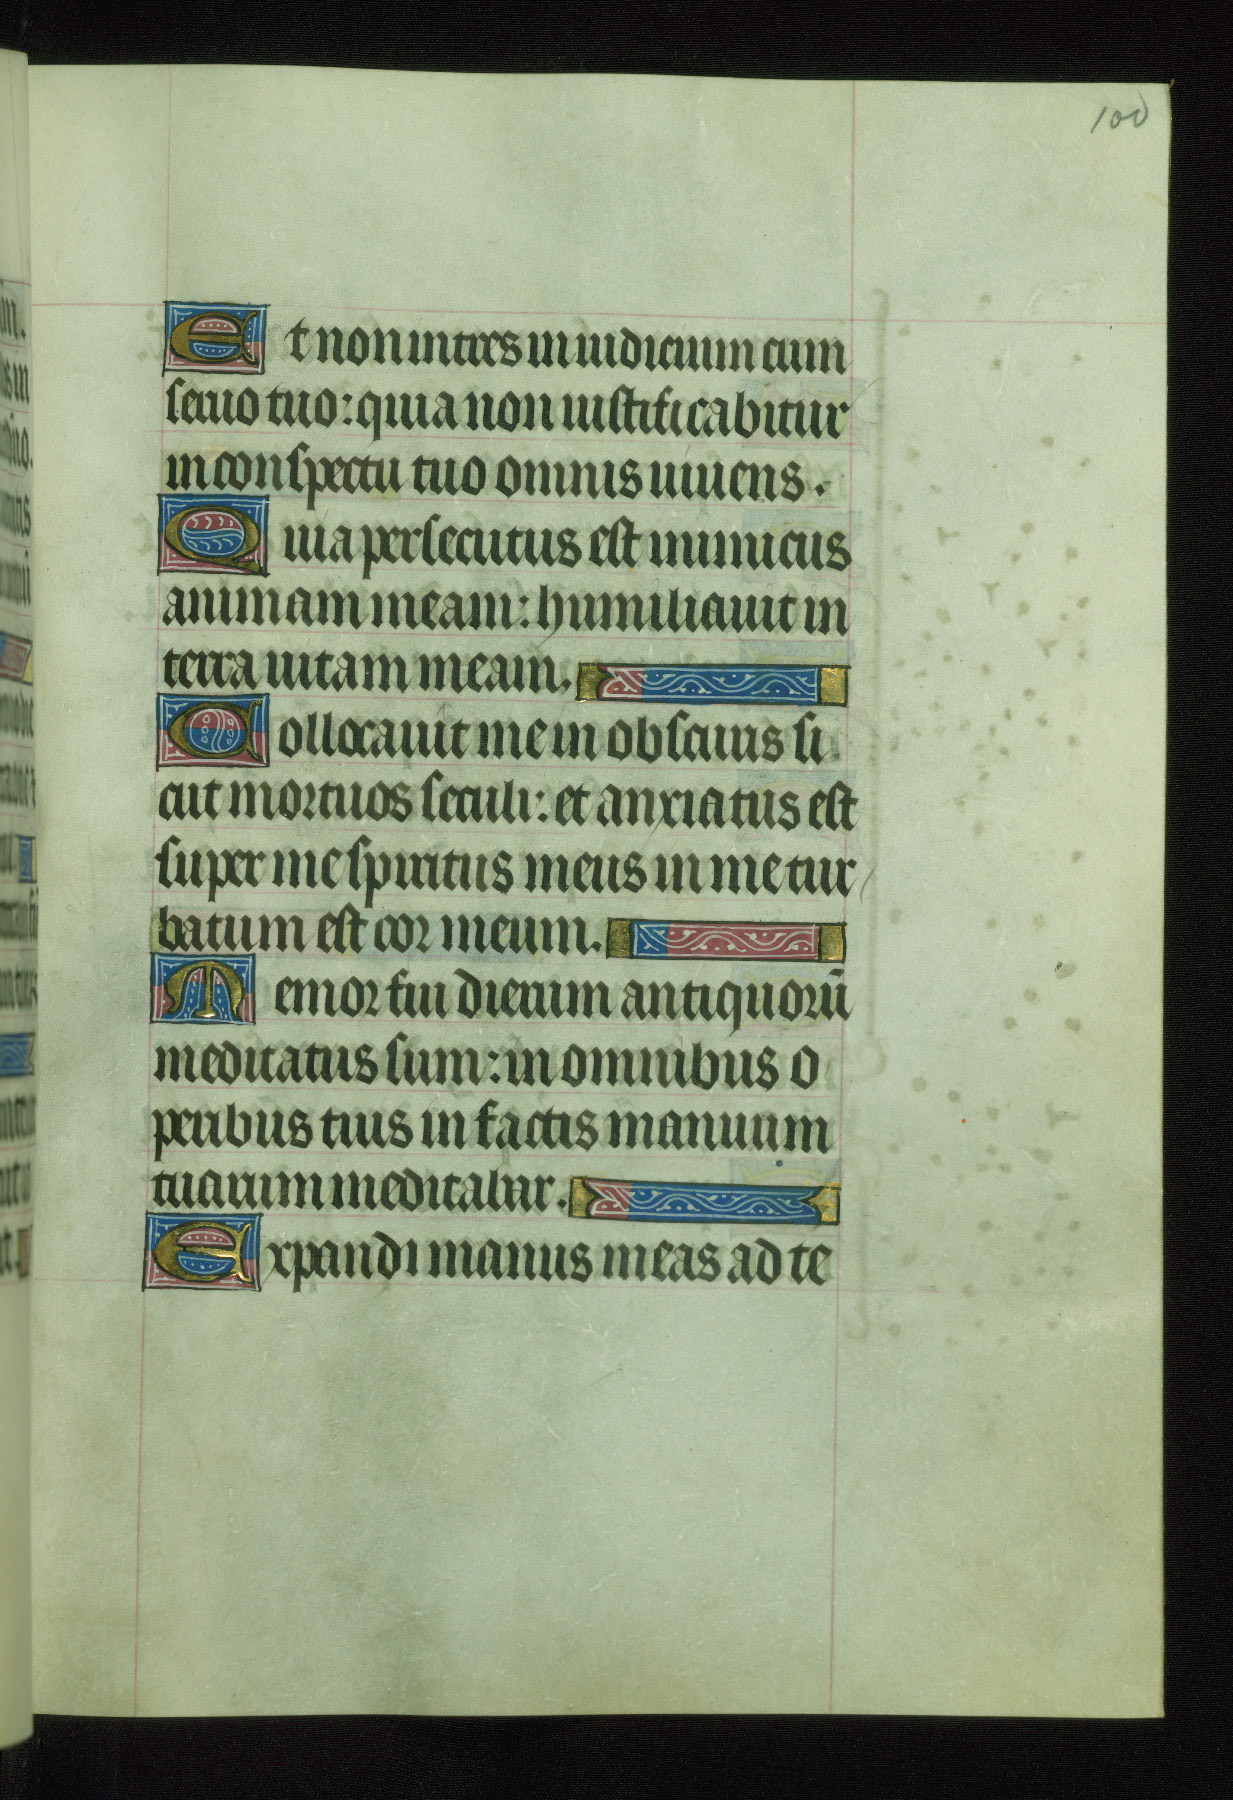 100
Et non intres in iudicium cum
seruo tuo: quia non iustificabitur
in conspectu tuo omnis uiuens.
Quia persecutus est inimicus
animam meam: humiliauit in
terra uitam meam.
Collocauit me in obscuris si
cut mortuos seculi: et anxiatus est
super me spiritus meus in me tur
batum est cor meum.
Memor fui dierum antiquorū
meditatus sum: in omnibus o
peribus tuis in factis manuum
tuarum meditabar.
Expandi manus meas ad te